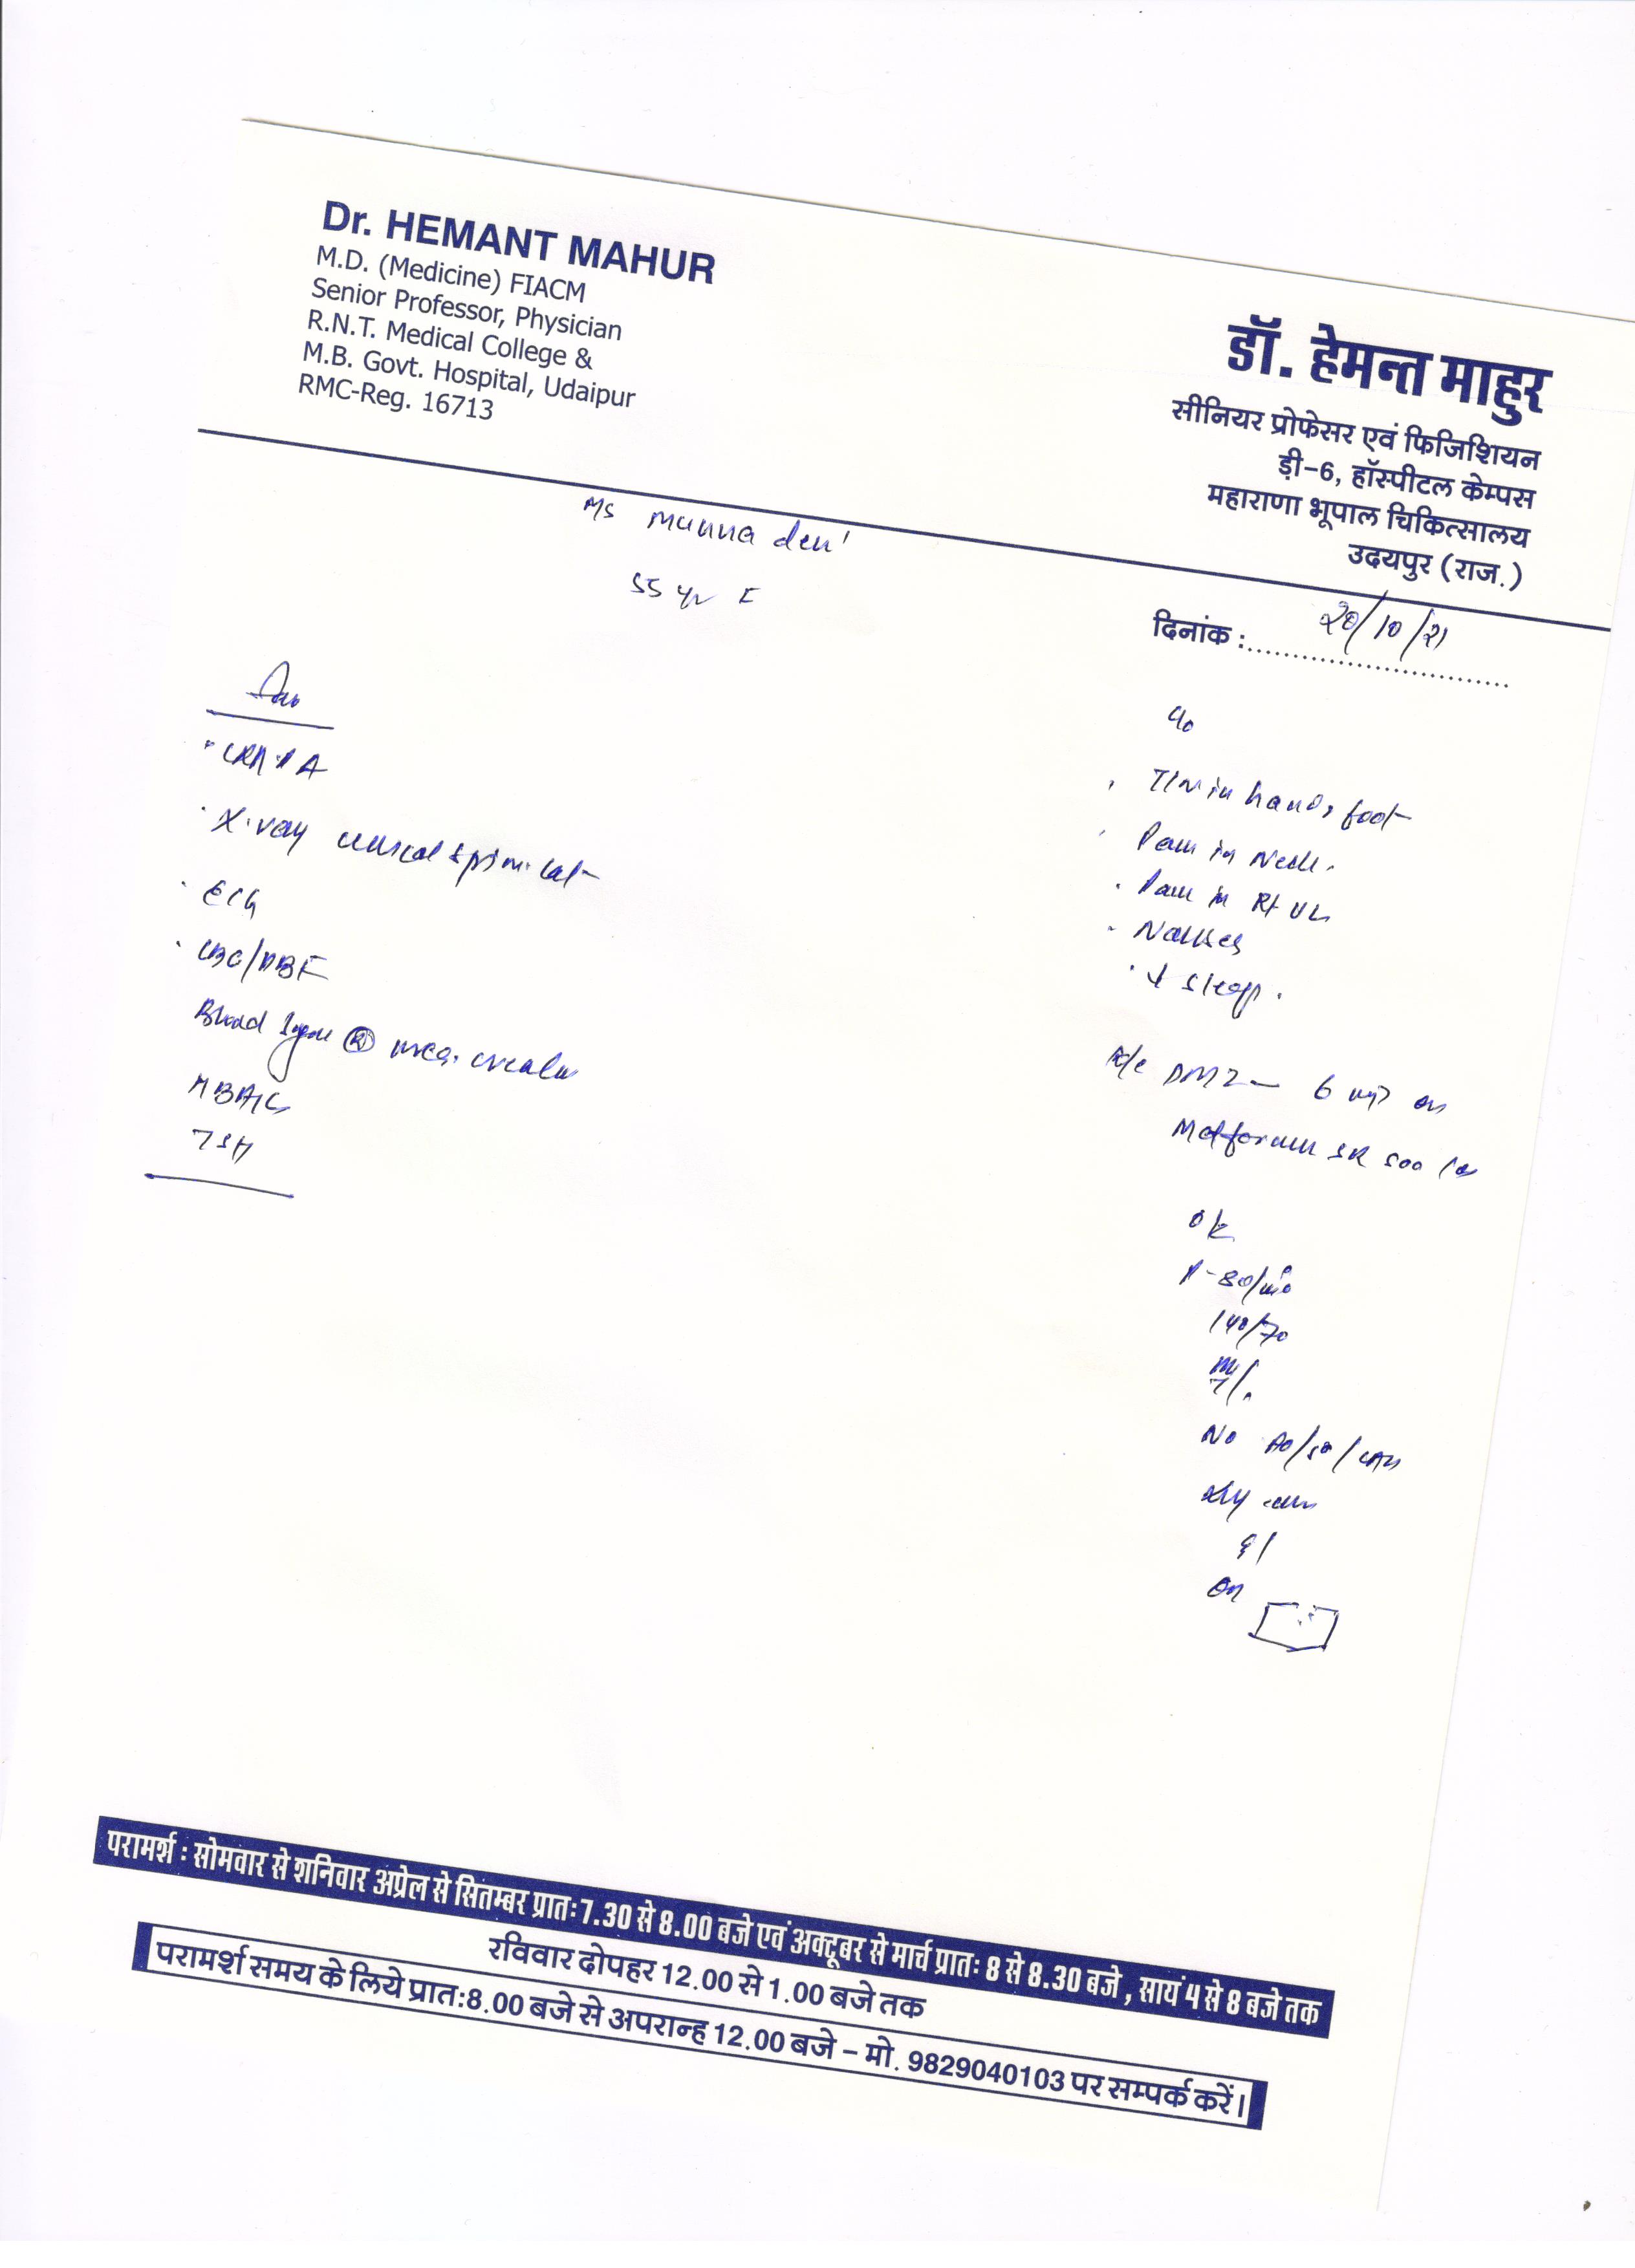 Dr. HEMANT MAHUR
M.D. (Medicine) FIACM
Senior Professor, Physician
R.N.T. Medical College &
M.B. Govt. Hospital, Udaipur
RMC-Reg. 16713
डॉ. हेमन्त माहुर
सीनियर प्रोफेसर एवं फिजिशियन
ड़ी-6, हॉस्पीटल केम्पस
महाराणा भूपाल चिकित्सालय
उदयपुर (राज.)
Ms Munna devi
55 yr F
दिनांक : 20/10/21
X-ray cervical spine lat
ECG
CBC/PBF
Blood Sugar (R) urea, creatin
HBA1C
TSH
c/o
T/N in hand, foot
Pain in Neck
Pain in Rt UL
Nausea
↓ sleep.
DM2 - 6
Metformin SR 500
O/E
P-80/min
140/70
No
परामर्श : सोमवार से शनिवार अप्रेल से सितम्बर प्रातः 7.30 से 8.00 बजे एवं अक्टूबर से मार्च प्रातः 8 से 8.30 बजे, सायं 4 से 8 बजे तक
रविवार दोपहर 12.00 से 1.00 बजे तक
परामर्श समय के लिये प्रातः 8.00 बजे से अपरान्ह 12.00 बजे – मो. 9829040103 पर सम्पर्क करें।